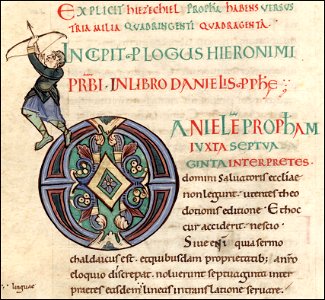 EXPLICIT HIEZECHIEL PROPHA HABENS VERSUS
TRIA MILIA QUADRINGENTI QUADRAGENTA.
INCIPIT PLOGUS HIERONIMI
PRBI. IN LIBRO DANIELIS PPHE
DANIELE PROPHAM
IUXTA SEPTUA
GINTA INTERPRETES.
domini salvatoris eccliae
non legunt. utentes theo
dotionis editione. Et hoc
cur acciderit nescio.
Sive quia sermo
chaldaicus est. et quibusdam proprietatib; a nro
eloquio discrepat. noluerunt septuaginta inter
praetes easdem lineas in translatione servare.
linguae